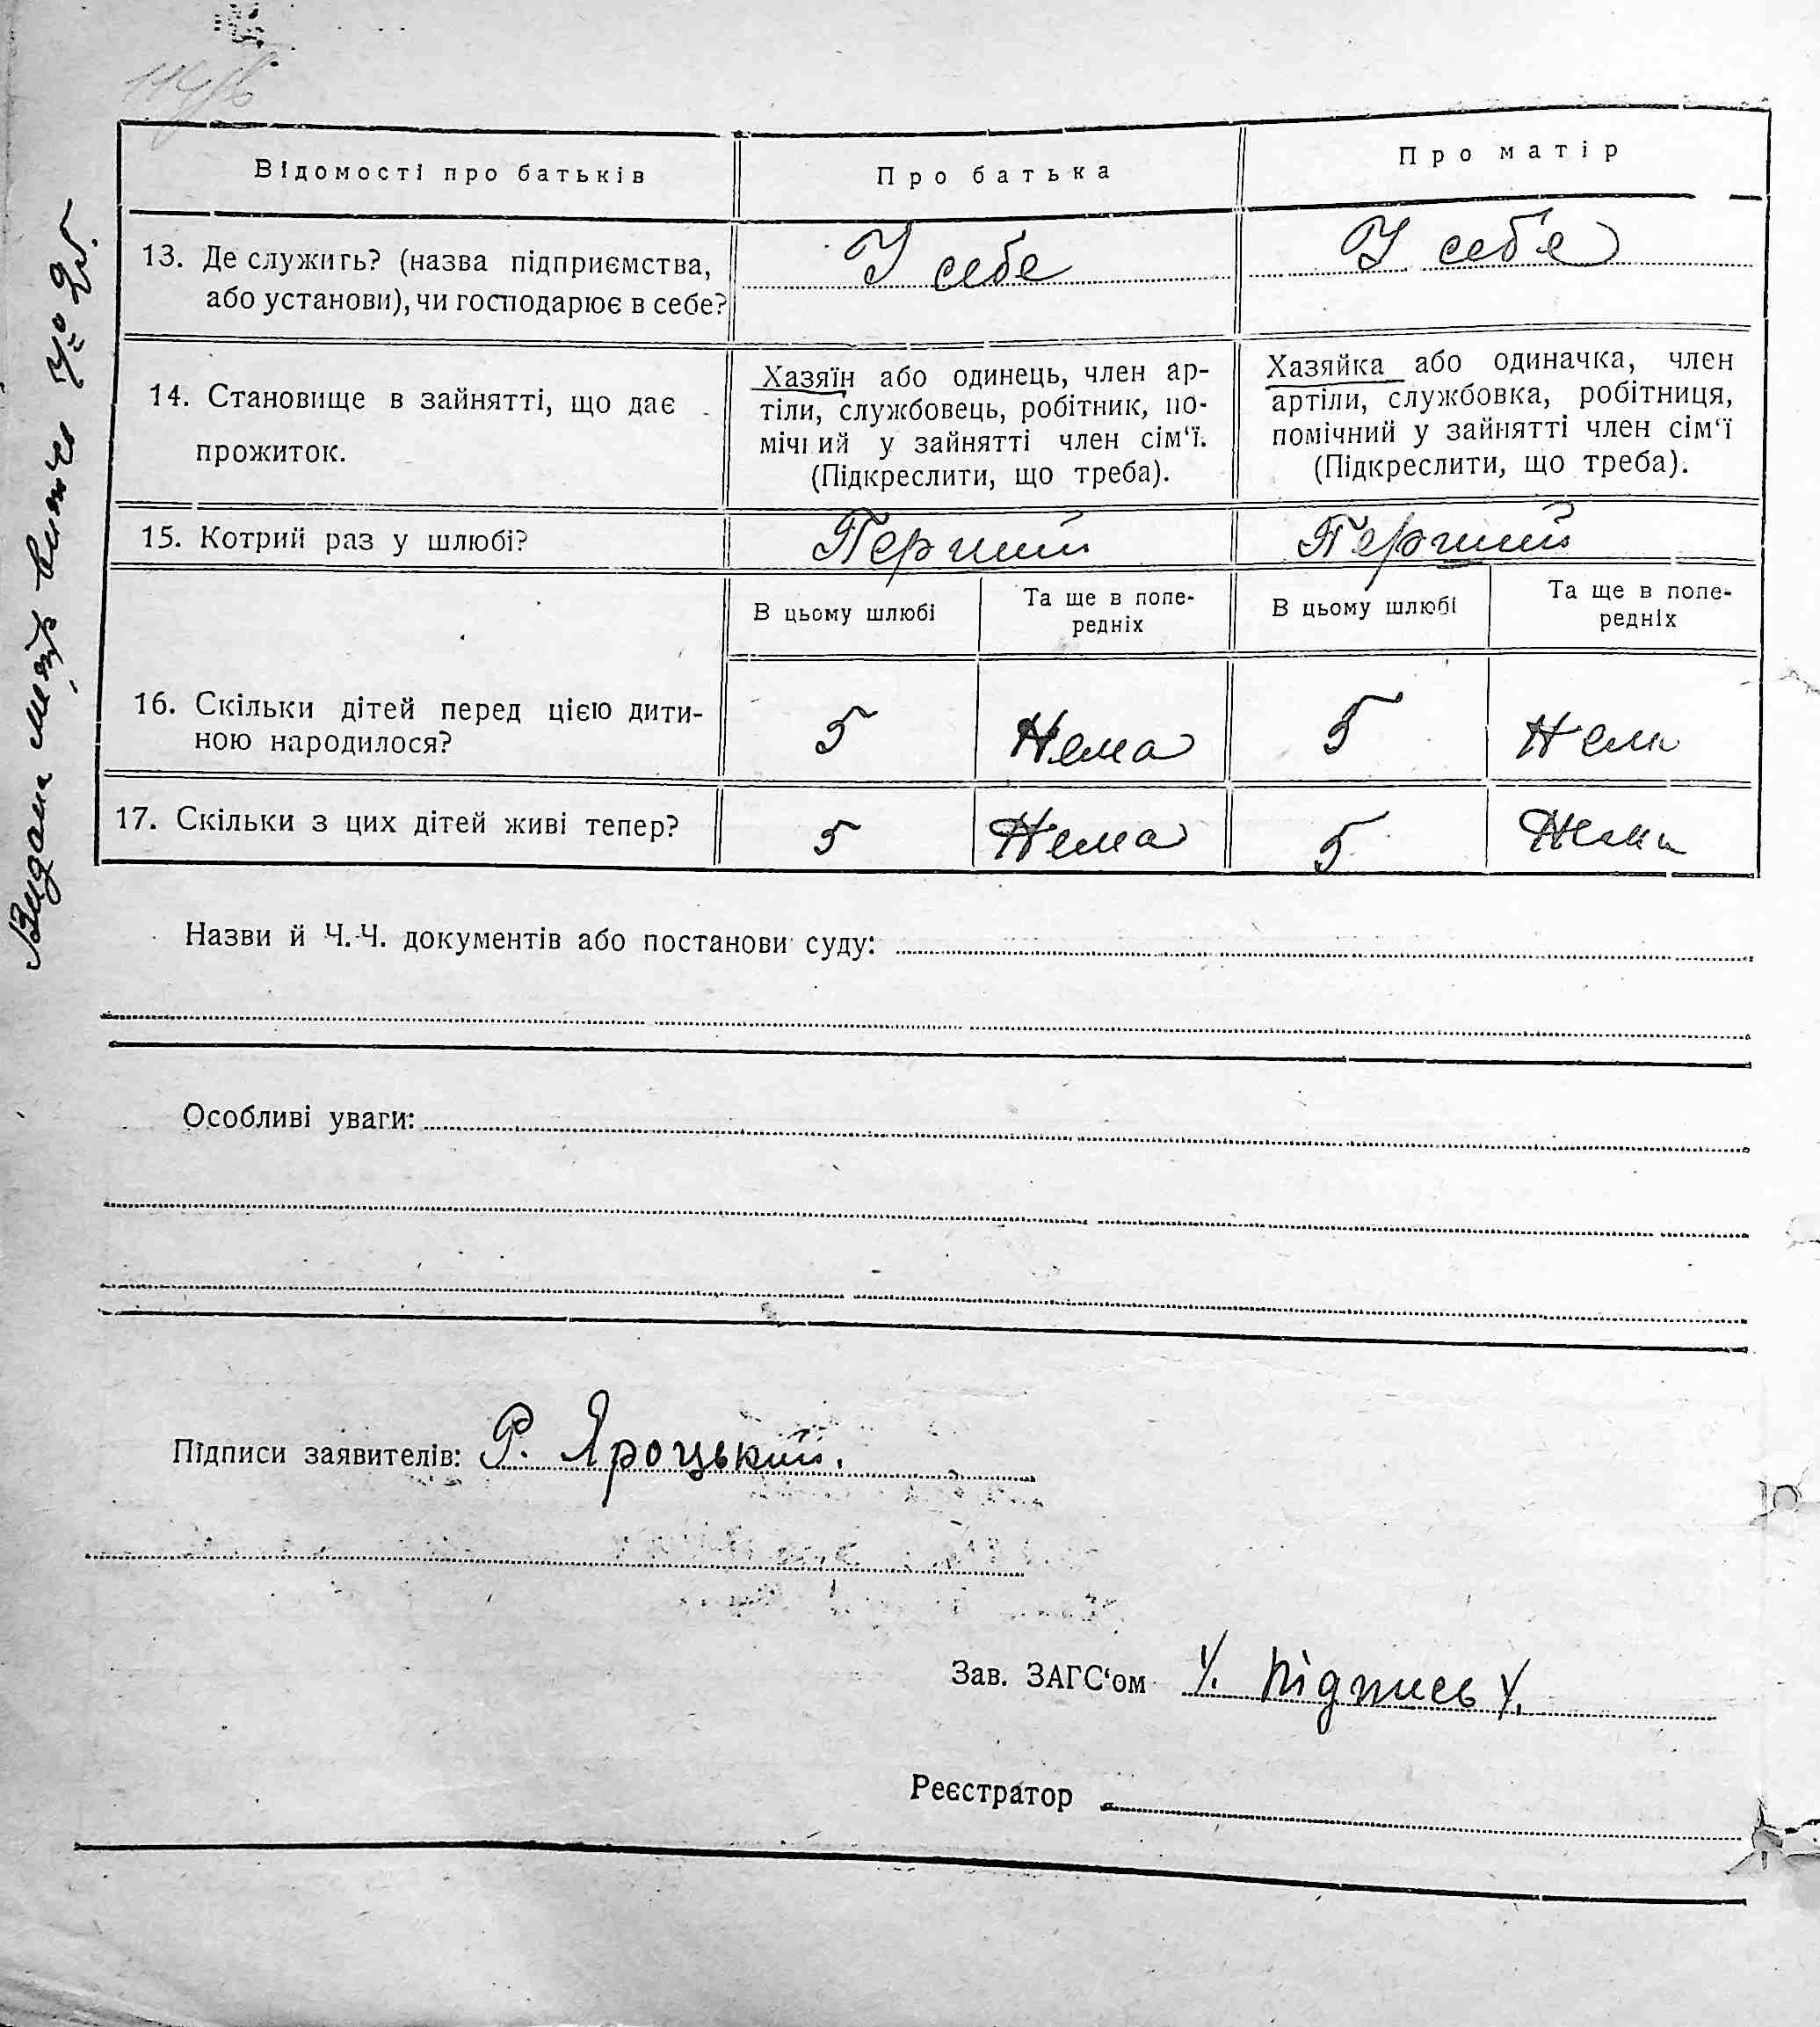 Відомості про батьків
Про батька
Про матір
13. Де служить? (назва підприємства,
або установи), чи господарює в себе?
У себе
У себе
14. Становище в зайнятті, що дає
прожиток.
Хазяїн або одинець, член ар-
тіли, службовець, робітник, по-
мічний у зайнятті член сім‘ї.
(Підкреслити, що треба).
Хазяйка або одиначка, член
артіли, службовка, робітниця,
помічний у зайнятті член сім‘ї
(Підкреслити, що треба).
15. Котрий раз у шлюбі?
Перший
Перший
В цьому шлюбі
Та ще в попе-
редніх
В цьому шлюбі
Та ще в попе-
редніх
16. Скільки дітей перед цією дити-
ною народилося?
5
Нема
5
Нема
17. Скільки з цих дітей живі тепер?
5
Нема
5
Нема
Назви й Ч.-Ч. документів або постанови суду:
Особливі уваги:
Підписи заявителів: Р. Яроцький.
Зав. ЗАГС‘ом У. Підпись У.
Реєстратор
Видана